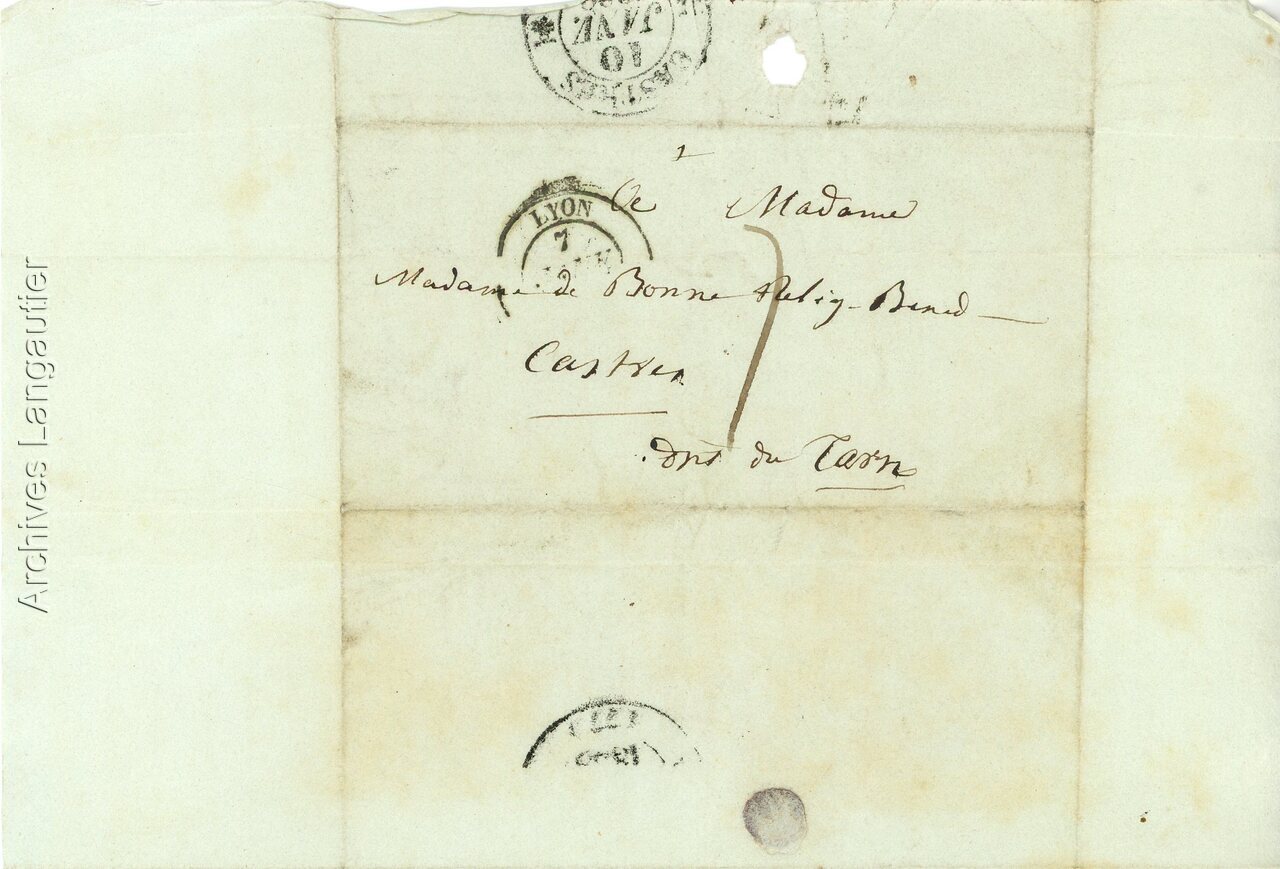 CASTRES
10
JANV
LYON
7
A Madame
Madame de Bonne Relig. Bened
Castres
7
dpt du Tarn
Archives Langautier